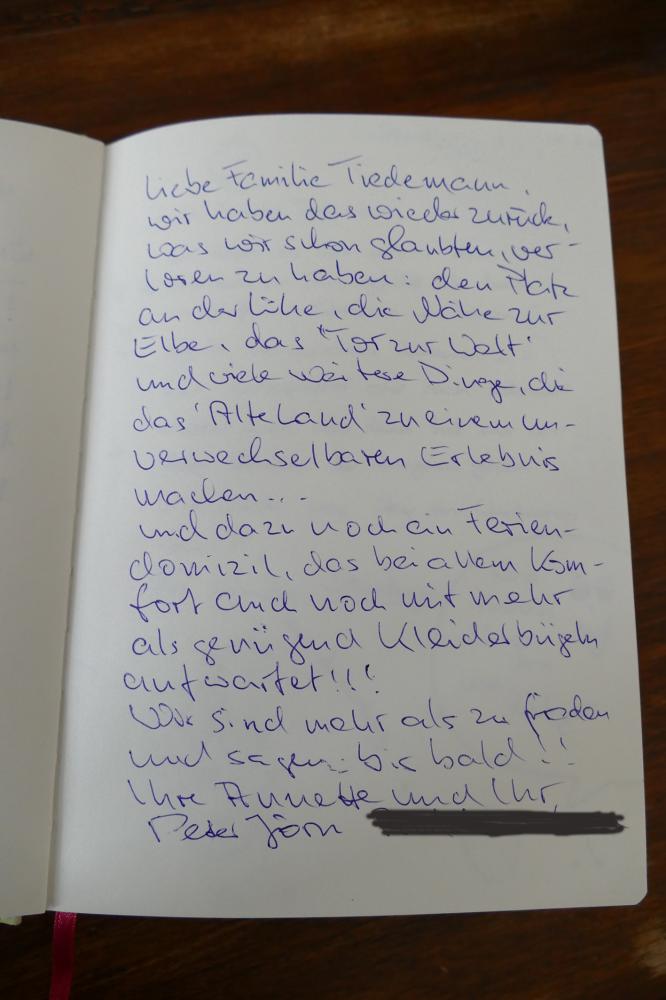 Liebe Familie Tiedemann,
wir haben das wieder zurück,
was wir schon glaubten, ver-
loren zu haben: den Platz
an der Lühe, die Nähe zur
Elbe, das "Tor zur Welt"
und viele weitere Dinge, die
das 'Alte Land' zu einem un-
verwechselbaren Erlebnis
machen...
und dazu noch ein Ferien-
domizil, das bei allem Kom-
fort auch noch mit mehr
als genügend Kleiderbügeln
aufwartet!!!
Wir sind mehr als zufrieden
und sagen: bis bald!!
Ihre Annette und Ihr
Peter Jörn